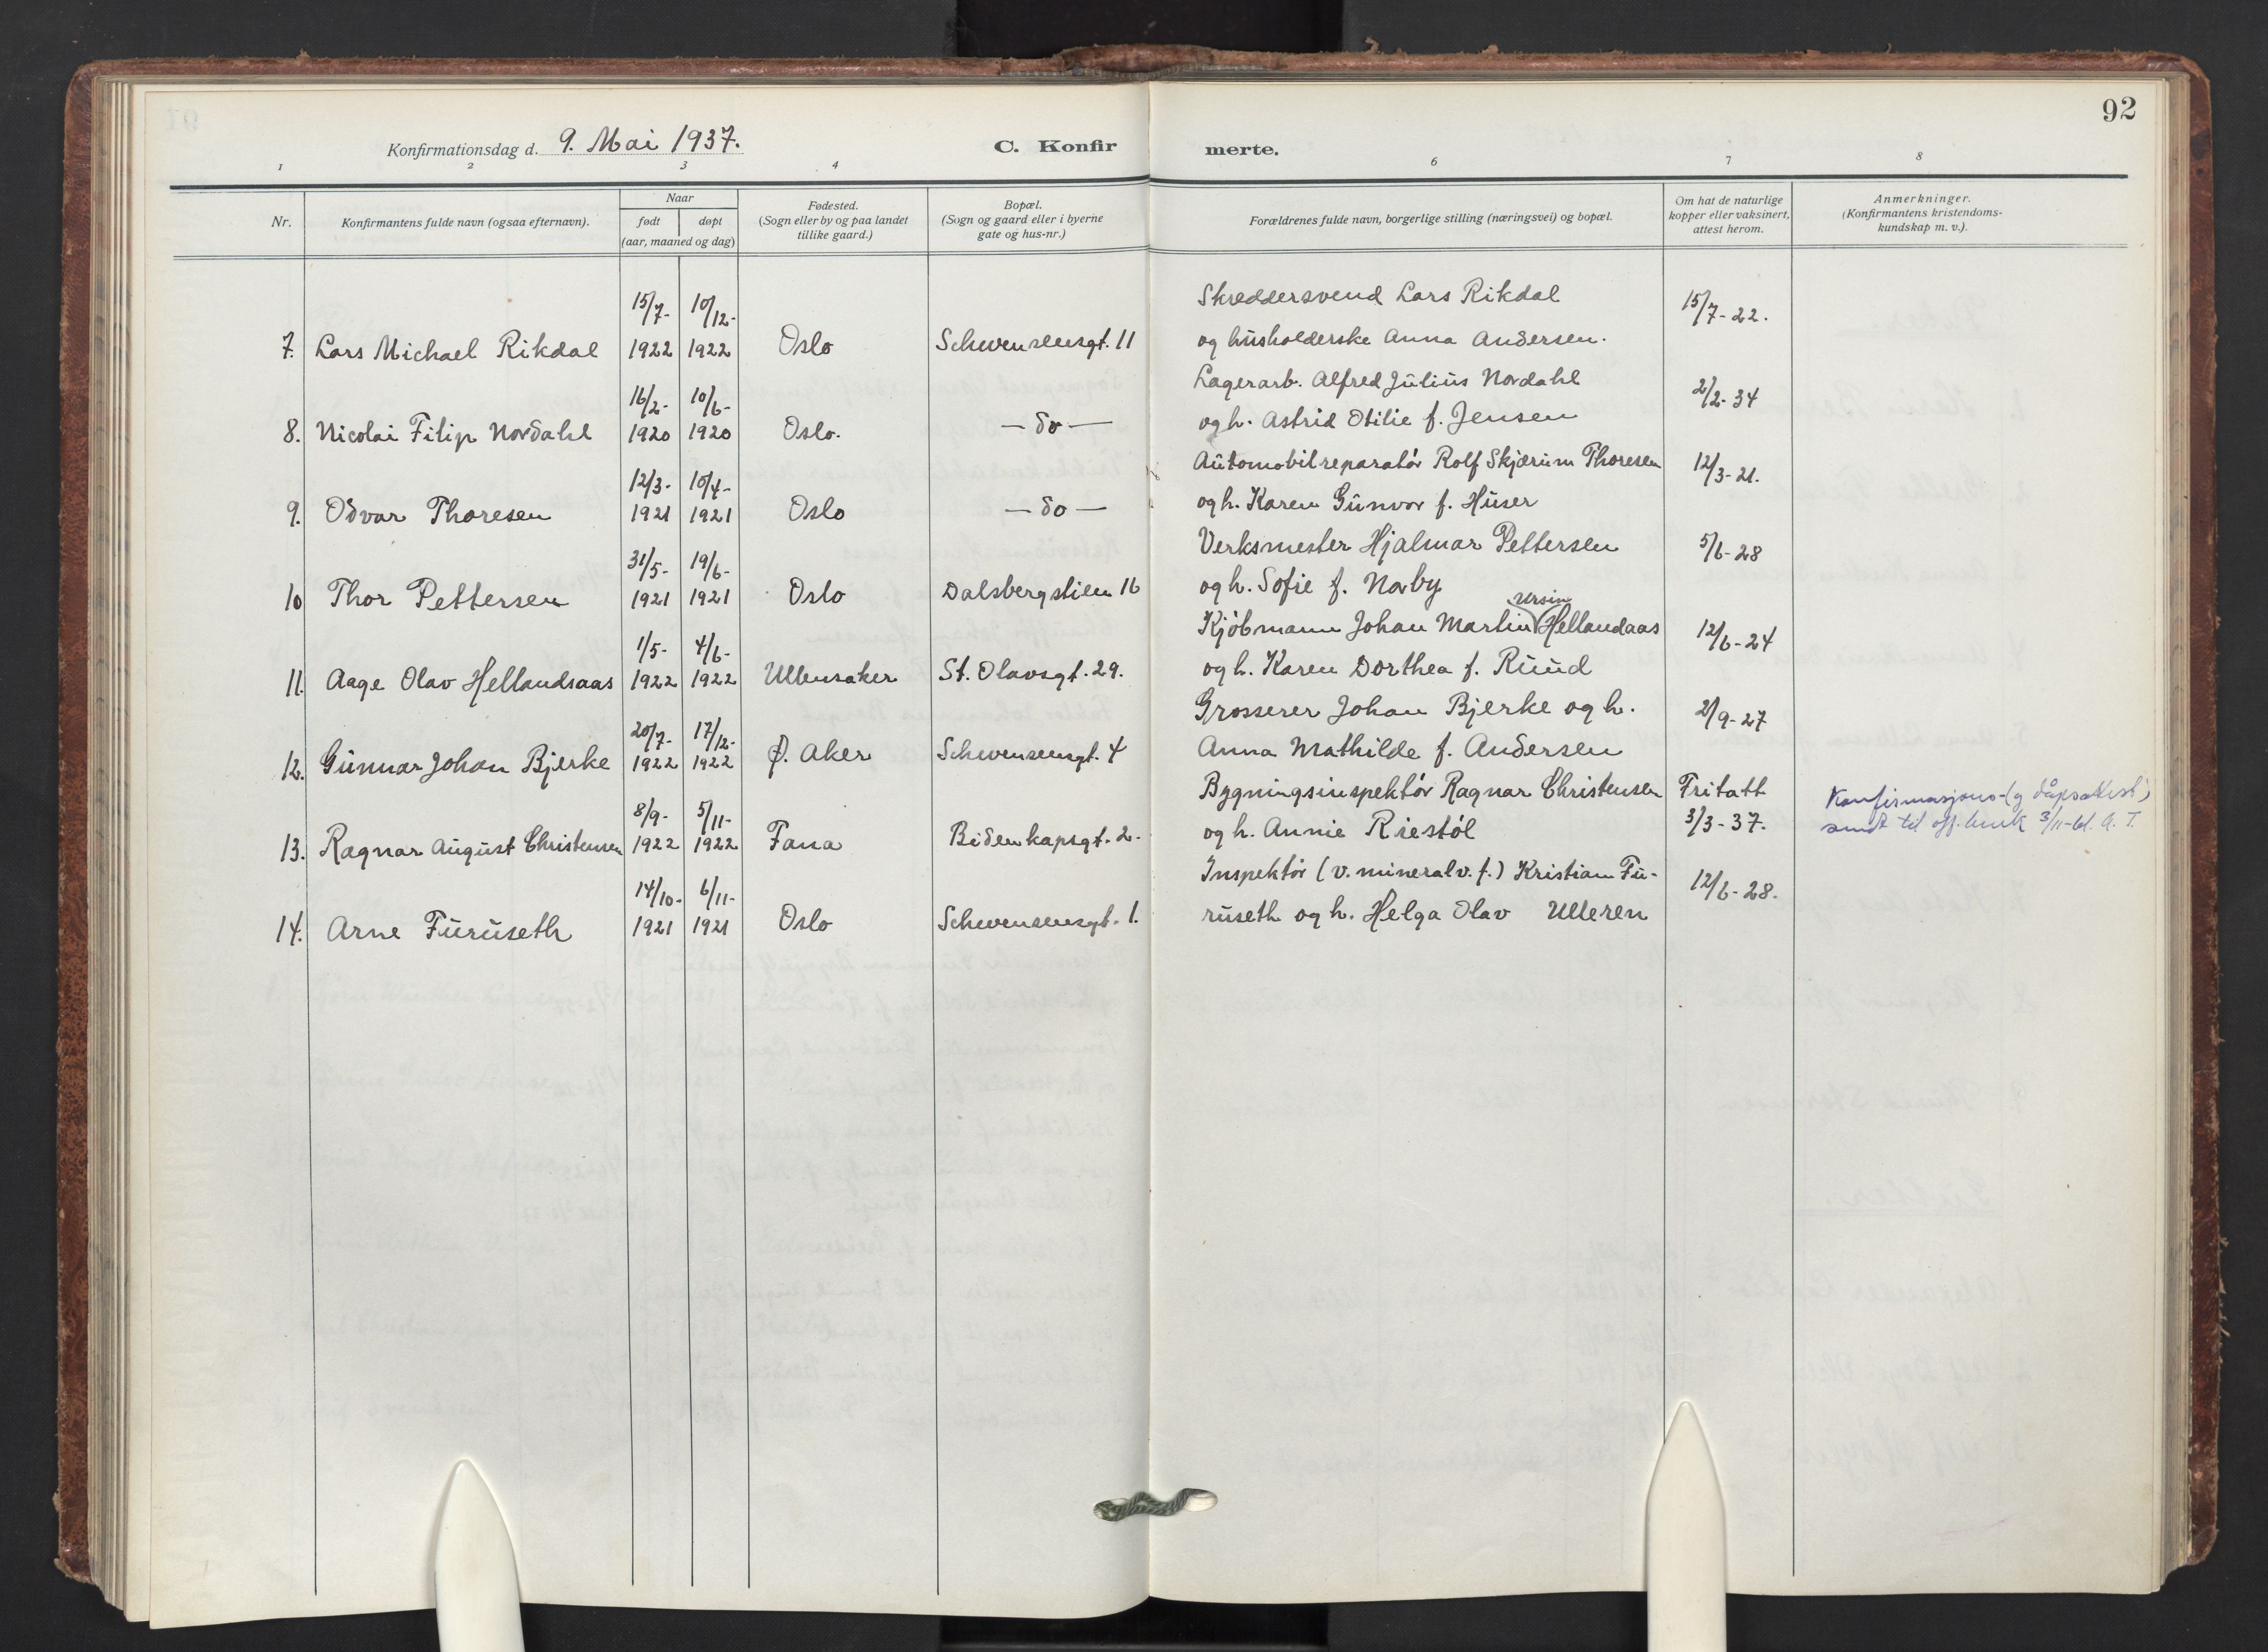 92
Konfirmationsdag d. 9. Mai 1937. C. Konfirmerte.
1 2 3 4 6 7 8
Nr. Konfirmantens fulde navn (ogsaa efternavn). Naar født døpt (aar, maaned og dag) Fødested. (Sogn eller by og paa landet tillike gaard.) Bopæl. (Sogn og gaard eller i byerne gate og hus-nr.) Forældrenes fulde navn, borgerlige stilling (næringsvei) og bopæl. Om hat de naturlige kopper eller vaksinert, attest herom. Anmerkninger. (Konfirmantens kristendomskundskap m. v.).
15/7- 10/12- Skreddersvend Lars Rikdal 15/7-22.
7. Lars Michael Rikdal 1922 1922 Oslo Schwensensgt. 11 og husholderske Anna Andersen.
16/2- 10/6- Lagerarb. Alfred Julius Nordahl 2/2-34
8. Nicolai Filip Nordahl 1920 1920 Oslo. — do — og h. Astrid Otilie f. Jensen
12/3- 10/4- Automobilreparatør Rolf Skjærum Thoresen 12/3-21.
9. Odvar Thoresen 1921 1921 Oslo — do — og h. Karen Gunvor f. Huser
31/5- 19/6- Verksmester Hjalmar Pettersen 5/6-28
10 Thor Pettersen 1921 1921 Oslo Dalsbergstien 16 og h. Sofie f. Norby
Ursin
1/5- 4/6- Kjøbmann Johan Martin Hellandaas 12/6-24
11. Aage Olav Hellandsaas 1922 1922 Ullensaker St. Olavsgt. 29. og h. Karen Dorthea f. Ruud
20/7- 17/12- Grosserer Johan Bjerke og h. 2/9-27
12. Gunnar Johan Bjerke 1922 1922 Ø. Aker Schwensensgt. 4 Anna Mathilde f. Andersen
8/9- 5/11- Bygningsinspektør Ragnar Christensen Fritatt Konfirmasjons- (g dåpsattest)
13. Ragnar August Christensen 1922 1922 Fana Bidenkapsgt. 2. og h. Annie Riestøl 3/3-37. sendt til off. bruk 3/11-61. A. T.
14/10- 6/11- Inspektør (v. mineralv. f.) Kristian Fu- 12/6-28.
14. Arne Furuseth 1921 1921 Oslo Schwensensgt. 1. ruseth og h. Helga Olav Ulleren